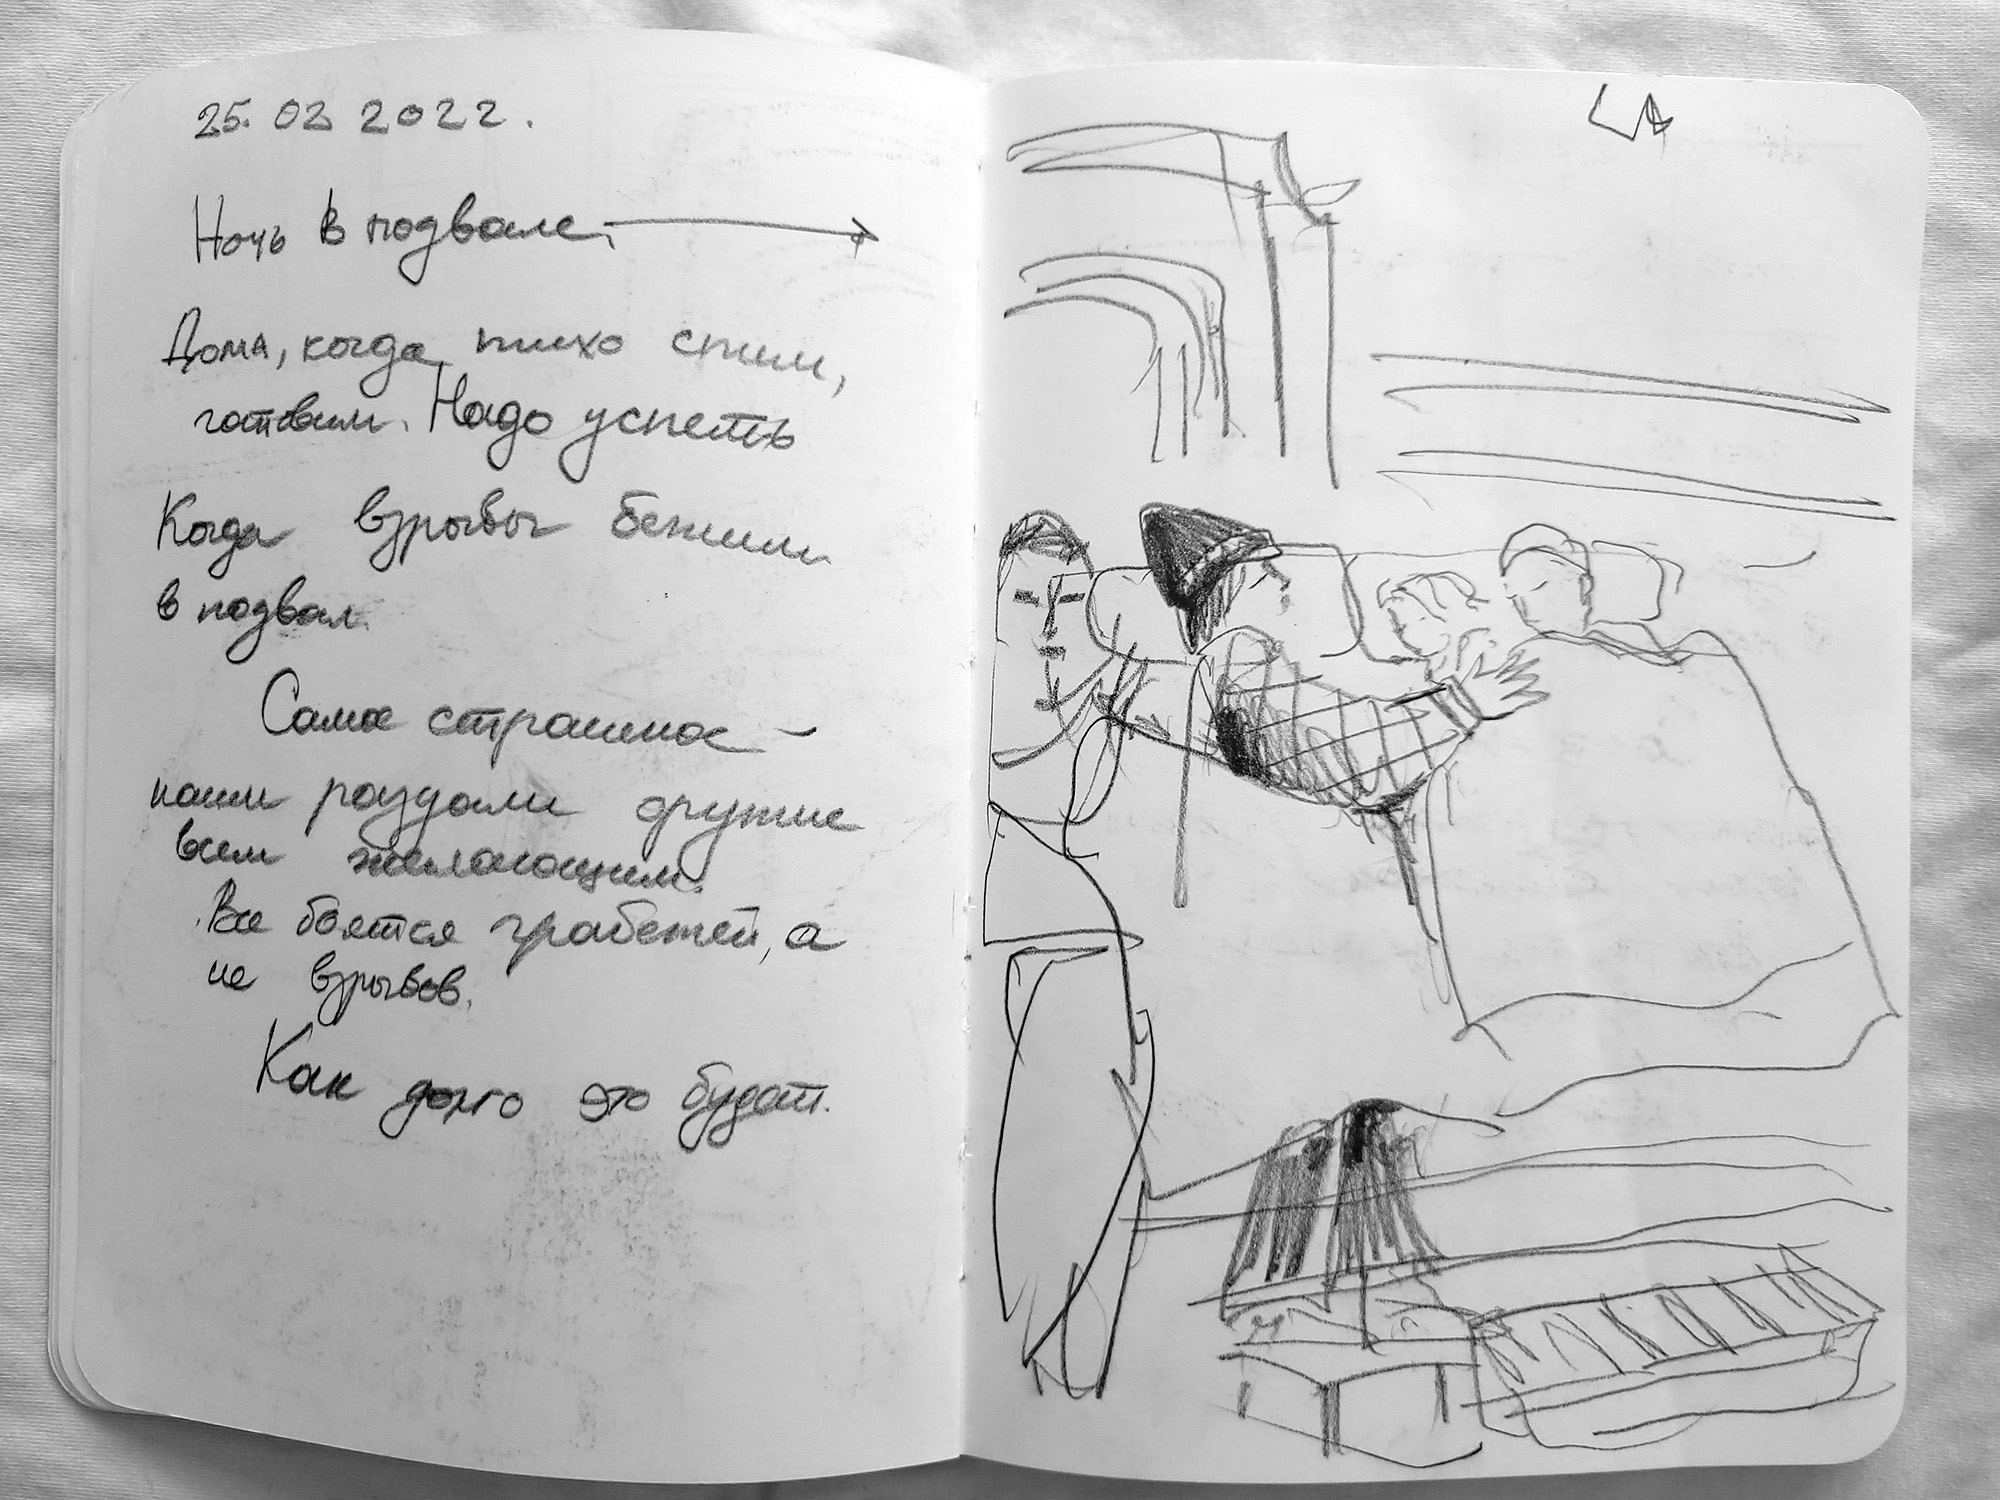 25.02 2022.
Ночь в подвале.
Дома, когда тихо спим,
готовим. Надо успеть
Когда взрывы бежим
в подвал.
Самое страшное -
наши раздали оружие
всем желающим.
Все боятся грабежей, а
не взрывов.
Как долго это будет.